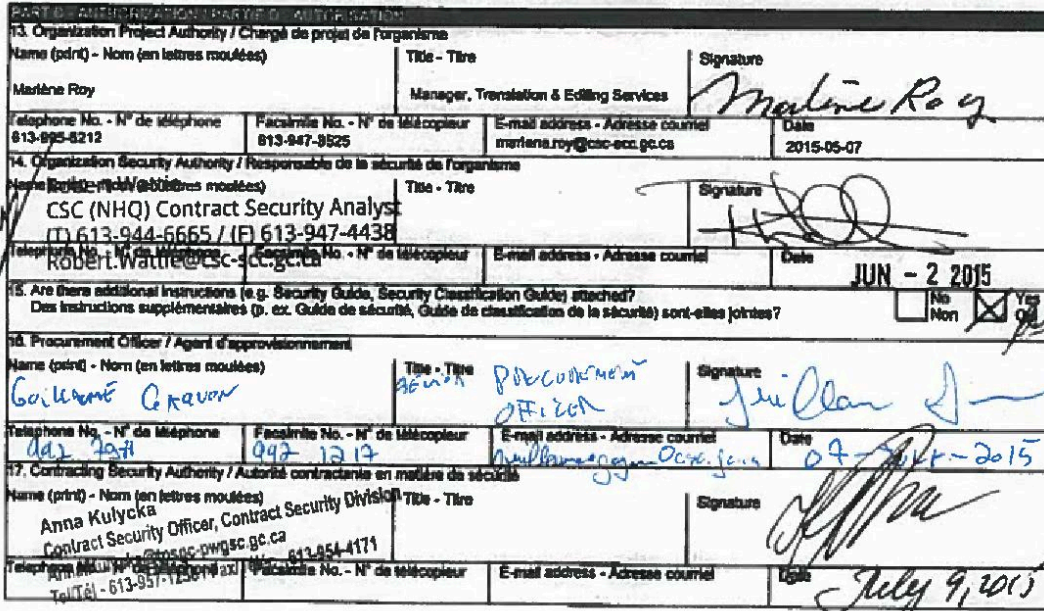 PART D - AUTHORIZATION / PARTIE D - AUTORISATION
13. Organization Project Authority / Chargé de projet de l'organisme
Name (print) - Nom (en lettres moulées)
Title - Titre
Signature
Marlène Roy
Manager, Translation & Editing Services
Marlène Roy
Telephone No. - N° de téléphone
Facsimile No. - N° de télécopieur
E-mail address - Adresse courriel
Date
613-995-8212
613-947-9525
marlene.roy@csc-scc.gc.ca
2015-05-07
14. Organization Security Authority / Responsable de la sécurité de l'organisme
Name (print) - Nom (en lettres moulées)
Title - Titre
Signature
Robert Wattie
CSC (NHQ) Contract Security Analyst
(T) 613-944-6665 / (F) 613-947-4438
Robert.Wattie@csc-scc.gc.ca
Telephone No. - N° de téléphone
Facsimile No. - N° de télécopieur
E-mail address - Adresse courriel
Date
JUN - 2 2015
15. Are there additional instructions (e.g. Security Guide, Security Classification Guide) attached?
Des instructions supplémentaires (p. ex. Guide de sécurité, Guide de classification de la sécurité) sont-elles jointes?
No
Non
Yes
Oui
16. Procurement Officer / Agent d'approvisionnement
Name (print) - Nom (en lettres moulées)
Title - Titre
Signature
Guillaume
PROCUREMENT
OFFICER
Telephone No. - N° de téléphone
Facsimile No. - N° de télécopieur
E-mail address - Adresse courriel
Date
992
992 1217
2015
17. Contracting Security Authority / Autorité contractante en matière de sécurité
Name (print) - Nom (en lettres moulées)
Title - Titre
Signature
Anna Kulycka
Contract Security Officer, Contract Security Division
613-954-4171
Tel/Tél - 613-957-
Telephone No. - N° de téléphone
Facsimile No. - N° de télécopieur
E-mail address - Adresse courriel
Date
July 9, 2015